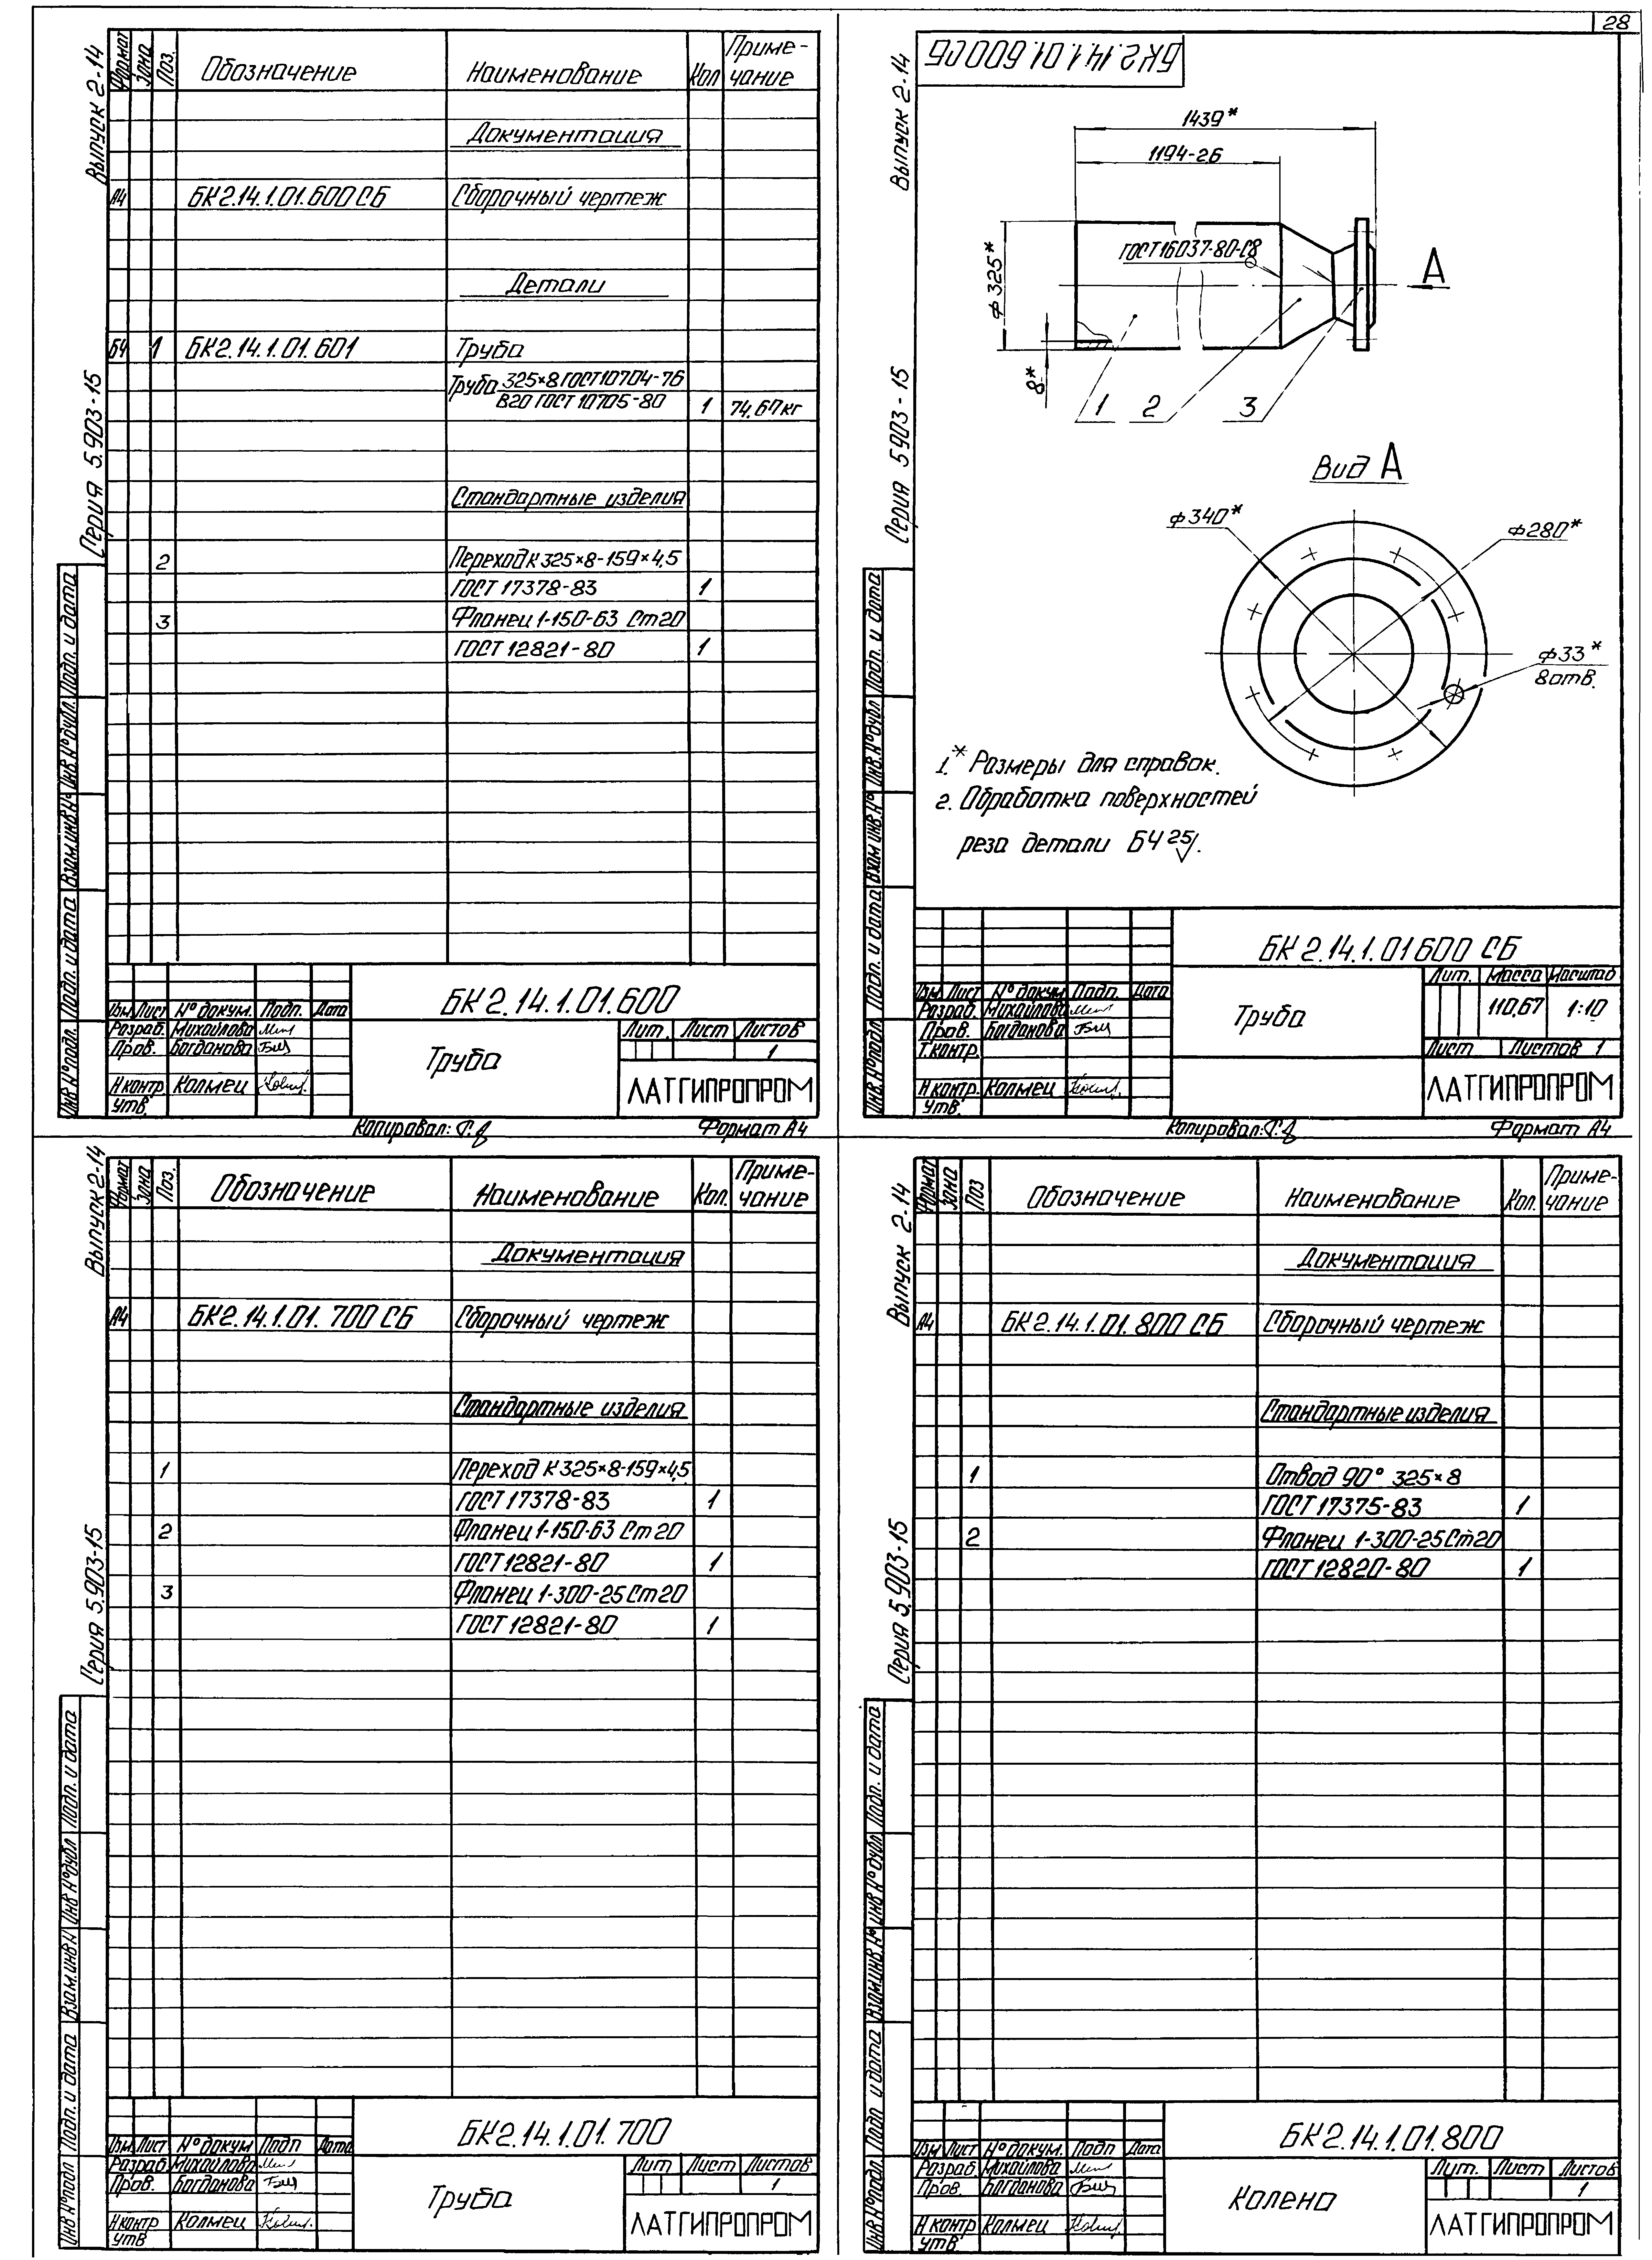 28
Выпуск 2-14
Серия 5.903-15
Формат Зона Поз. Обозначение Наименование Кол Приме-чание
Документация
А4 БК2.14.1.01.600 СБ Сборочный чертеж
Детали
БЧ 1 БК2.14.1.01.601 Труба
Труба 325×8 ГОСТ 10704-76
В20 ГОСТ 10705-80 1 74,67кг
Стандартные изделия
2 Переход К 325×8-159×4,5
ГОСТ 17378-83 1
3 Фланец 1-150-63 Ст20
ГОСТ 12821-80 1
Инв.№подл. Подп. и дата Взам.инв.№ Инв.№дубл. Подп. и дата
БК2.14.1.01.600
Изм Лист №докум. Подп. Дата
Разраб. Михайлова
Пров. Богданова
Н.контр. Колмец
Утв.
Труба
Лит. Лист Листов
1
ЛАТГИПРОПРОМ
Копировал:
Формат А4
Выпуск 2-14
Серия 5.903-15
БК2.14.1.01.600СБ
1439*
1194-2б
ГОСТ 16037-80-С8
ф325*
8*
А
1 2 3
Вид А
ф340*
ф280*
ф33*
8 отв.
1.* Размеры для справок.
2. Обработка поверхностей
реза детали БЧ 25.
Инв.№подл. Подп. и дата Взам инв.№ Инв.№дубл. Подп. и дата
БК 2.14.1.01600 СБ
Изм Лист №докум Подп. Дата
Разраб. Михайлова
Пров. Богданова
Т.контр.
Н.контр. Колмец
Утв.
Труба
Лит. Масса Масштаб
110,67 1:10
Лист Листов 1
ЛАТГИПРОПРОМ
Копировал:
Формат А4
Выпуск 2-14
Серия 5.903-15
Формат Зона Поз. Обозначение Наименование Кол. Приме-чание
Документация
А4 БК2.14.1.01.700 СБ Сборочный чертеж
Стандартные изделия
1 Переход К 325×8-159×4,5
ГОСТ 17378-83 1
2 Фланец 1-150-63 Ст20
ГОСТ 12821-80 1
3 Фланец 1-300-25 Ст20
ГОСТ 12821-80 1
Инв №подл Подп. и дата Взам.инв.№ Инв №дубл Подп. и дата
БК2.14.1.01.700
Изм Лист №докум Подп Дата
Разраб. Михайлова
Пров. Богданова
Н контр Колмец
Утв
Труба
Лит Лист Листов
1
ЛАТГИПРОПРОМ
Выпуск 2-14
Серия 5.903-15
Формат Зона Поз Обозначение Наименование Кол. Приме-чание
Документация
А4 БК2.14.1.01.800 СБ Сборочный чертеж
Стандартные изделия
1 Отвод 90° 325×8
ГОСТ 17375-83 1
2 Фланец 1-300-25 Ст20
ГОСТ 12820-80 1
Инв №подл. Подп и дата Взам.инв.№ Инв №дубл. Подп. и дата
БК2.14.1.01.800
Изм Лист №докум. Подп Дата
Разраб. Михайлова
Пров. Богданова
Н контр Колмец
Утв.
Колено
Лит. Лист Листов
1
ЛАТГИПРОПРОМ